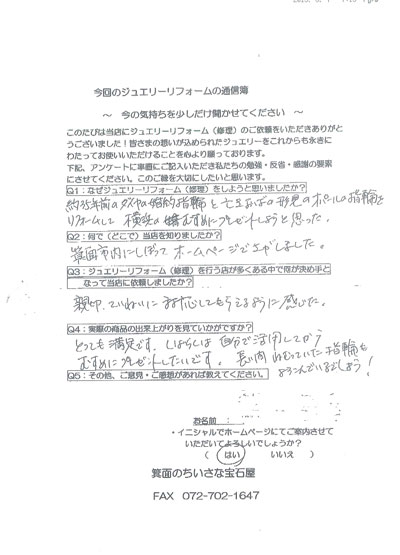 今回のジュエリーリフォームの通信簿
～ 今の気持ちを少しだけ聞かせてください ～
このたびは当店にジュエリーリフォーム（修理）のご依頼をいただきありがと
うございました！皆さまの想いが込められたジュエリーをこれからも永きに
わたってお使いいただけることを心より願っております。
下記、アンケートに率直にご記入いただき私たちの勉強・反省・感謝の要素
にさせてください。このご縁を大切にしたいと思います。
Q1：なぜジュエリーリフォーム（修理）をしようと思いましたか？
約35年前のダイヤの婚約指輪と亡き母の形見のオパールの指輪を
リフォームして 横浜の むすめにプレゼントしようと思った。
Q2：何で（どこで）当店を知りましたか？
箕面市内にしぼって ホームページでさがしました。
Q3：ジュエリーリフォーム（修理）を行う店が多くある中で何が決め手と
なって当店に依頼しましたか？
親切、ていねいに 対応してもらえるように感じた。
Q4：実際の商品の出来上がりを見ていかがですか？
とっても満足です。しばらくは 自分で活用してから
むすめにプレゼントしたいです。長い間 ねむっていた指輪も
Q5：その他、ご意見・ご感想があれば教えてください。
よろこんでいるでしょう！
お名前：
・イニシャルでホームページにてご案内させて
いただいてよろしいでしょうか？
（ はい いいえ ）
箕面のちいさな宝石屋
FAX 072-702-1647